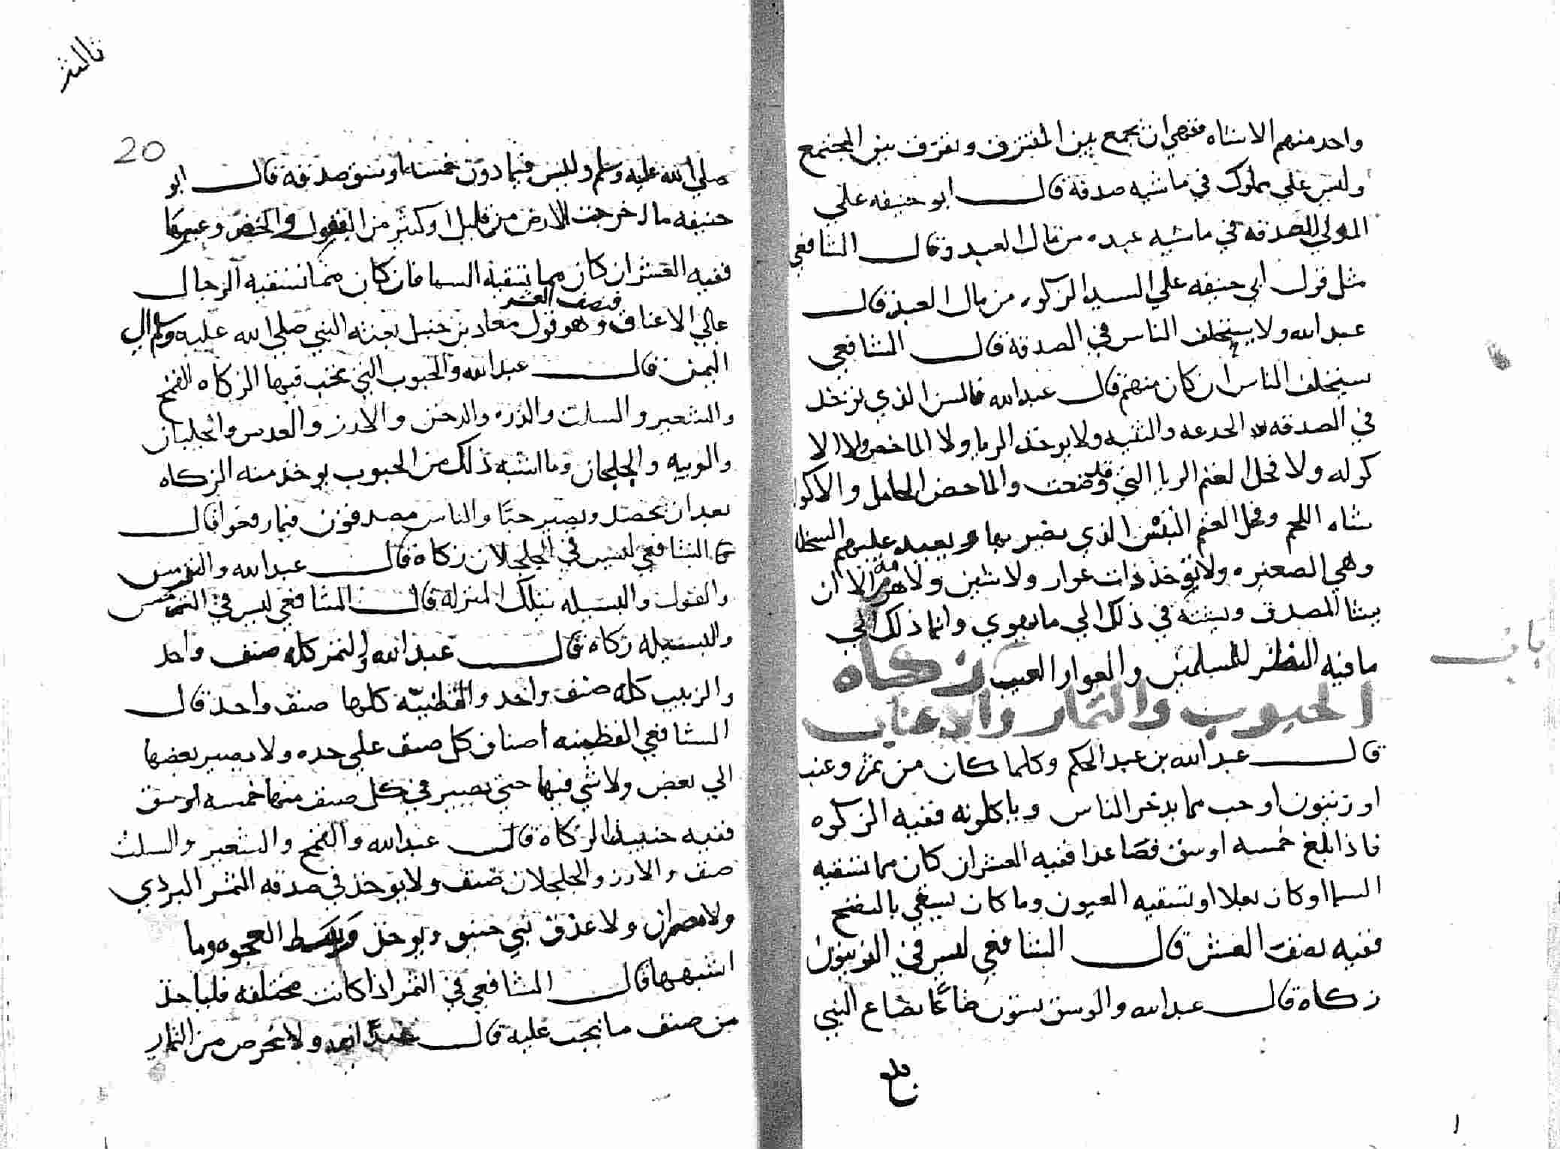 واحد منهم الا شاه فنهي ان يجمع بين المفترق و نفرق بين المجتمع
وليس علي مملوك في ماشيه صدقة قال ابو حنيفه علي
المولي الصدقه في ماشيه عبده من مال العبد وقال الشافعي
مثل قول ابي حنيفه علي السيد الزكوه من مال العبد قال
عبد الله ولا يستحلف الناس في الصدقة قال الشافعي
يستحلف الناس ان كان منهم قال عبد الله فالسن الذي توخذ
في الصدقه الجدعه والثنيه ولا يوخذ الربا ولا الماخض ولا الا
كوله ولا فحل الغنم الربا التي قد وضعت والماخض الحامل والاكو
شاه اللحم وفحل الغنم التيس الذي يضربها ويعد عليهم السخله
وهي الصغيره ولا يوخذ ذات عوار ولا تيس ولا هرمة الا ان
يشا المصدق وينته في ذلك الي ما يهوي وانما ذلك الي
ما فيه النظر للمسلمين والعوار العيب زكاه
باب
الحبوب والثمار والاعناب
قال عبد الله بن عبد الحكم وكلما كان من تمر وعنب
او زيتون او حب مما يدخر الناس وياكلونه ففيه الزكوه
فاذا بلغ خمسه اوسق فصاعدا ففيه العشر ان كان مما تسقيه
السما او كان بعلا او تسقيه العيون وما كان يسقي بالنضح
ففيه نصف العشر قال الشافعي ليس في الزيتون
زكاه قال عبد الله والوسق ستون صاعا بصاع النبي
بلغ
ثالث
20
صلي الله عليه وسلم وليس فيما دون خمسه اوسق صدقه قال ابو
حنيفه ما اخرجت الارض من قليل او كثير من البقول والخضر وغيرها
ففيه العشر ان كان مما تسقيه السما فان كان مما تسقيه الرجال
فنصف العشر
علي الاعناق وهو قول معاذ بن جبل بعثه النبي صلي الله عليه وسلم الي
اليمن قال عبد الله والحبوب التي تجب فيها الزكاه القمح
والشعير والسلت والذره والدخن والارز والعدس والجلبان
واللوبيه والجلجان وما اشبه ذلك من الحبوب يوخذ منه الزكاه
بعد ان تحصد ويصير حبا والناس مصدقون فيما رفعوا قال
الشافعي ليس في الجلجلان زكاه قال عبد الله والترمس
والفول والبسيله بتلك المنزله قال الشافعي ليس في الترمس
والبسيله زكاه قال عبد الله والتمر كله صنف واحد
والزبيب كله صنف واحد والقطنيه كلها صنف واحد قال
الشافعي القطنيه اصناف كل صنف علي حده ولا يصير بعضها
الي بعض ولا شي فيها حتي يصير في كل صنف منها خمسه اوسق
ففيه حينيذ الزكاه قال عبد الله والقمح والشعير والسلت
صنف والارز والجلجلان صنف ولا يوخذ في صدقه التمر البردي
ولا مصران ولا عذق بني حبيق ويوخذ وسط العجوه وما
اشبهها قال الشافعي في التمر اذا كانت مختلفه فلياخذ
من صنف ما يجب عليه قال عبد الله ولا يخرص من الثمار